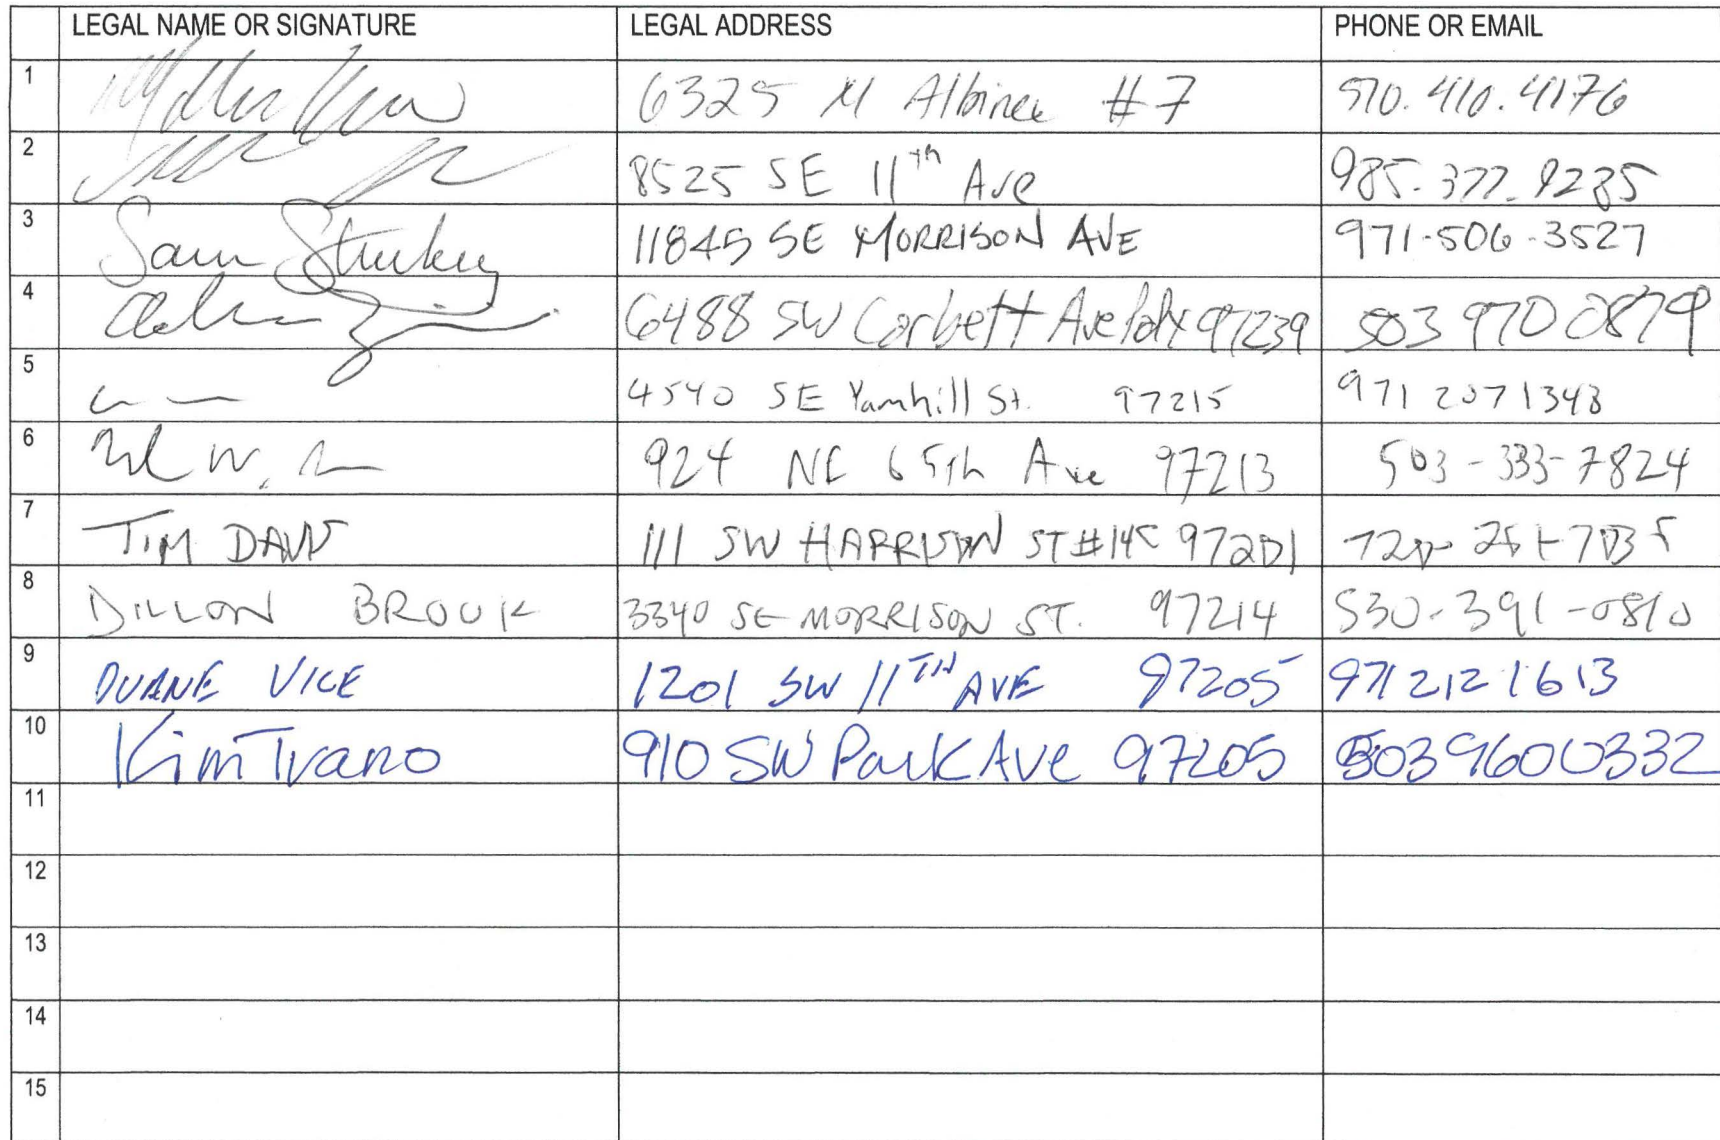 LEGAL NAME OR SIGNATURE LEGAL ADDRESS PHONE OR EMAIL
1 6325 N #7 570.410.4176
2 8525 SE 11th Ave 985-377-9235
3 Sam 11845 SE MORRISON AVE 971-506-3527
4 6488 SW Corbett Ave Pdx 97239 503 970 0879
5 4540 SE Yamhill St. 97215 971 207 1343
6 924 NE 65th Ave 97213 503-333-7824
7 TIM DAVIS 111 SW HARRISON ST 97201
8 DILLON BROUK 3340 SE MORRISON ST. 97214 530-391-0810
9 DUANE VICE 1201 SW 11TH AVE 97205 971 212 1613
10 Kim 910 SW Park Ave 97205 503 960 0332
11
12
13
14
15